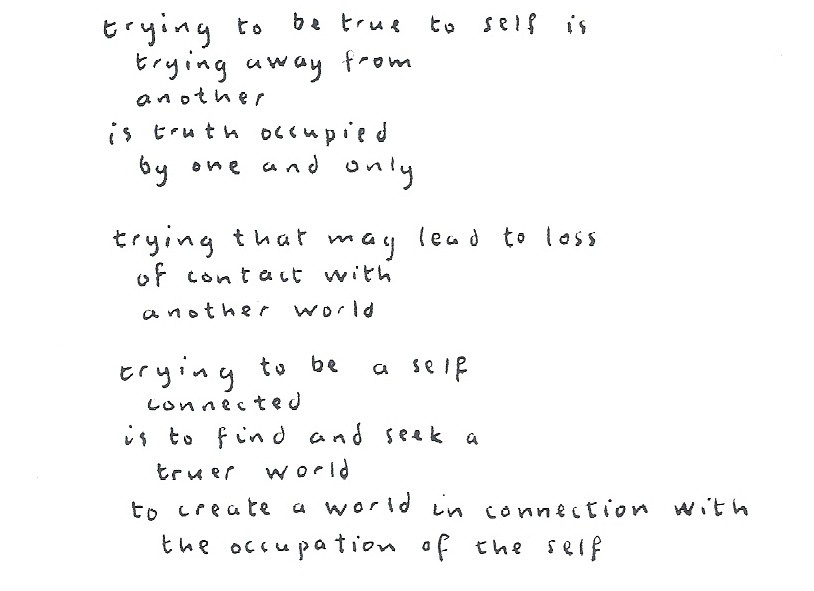 trying to be true to self is
trying away from
another
is truth occupied
by one and only
trying that may lead to loss
of contact with
another world
trying to be a self
connected
is to find and seek a
truer world
to create a world in connection with
the occupation of the self